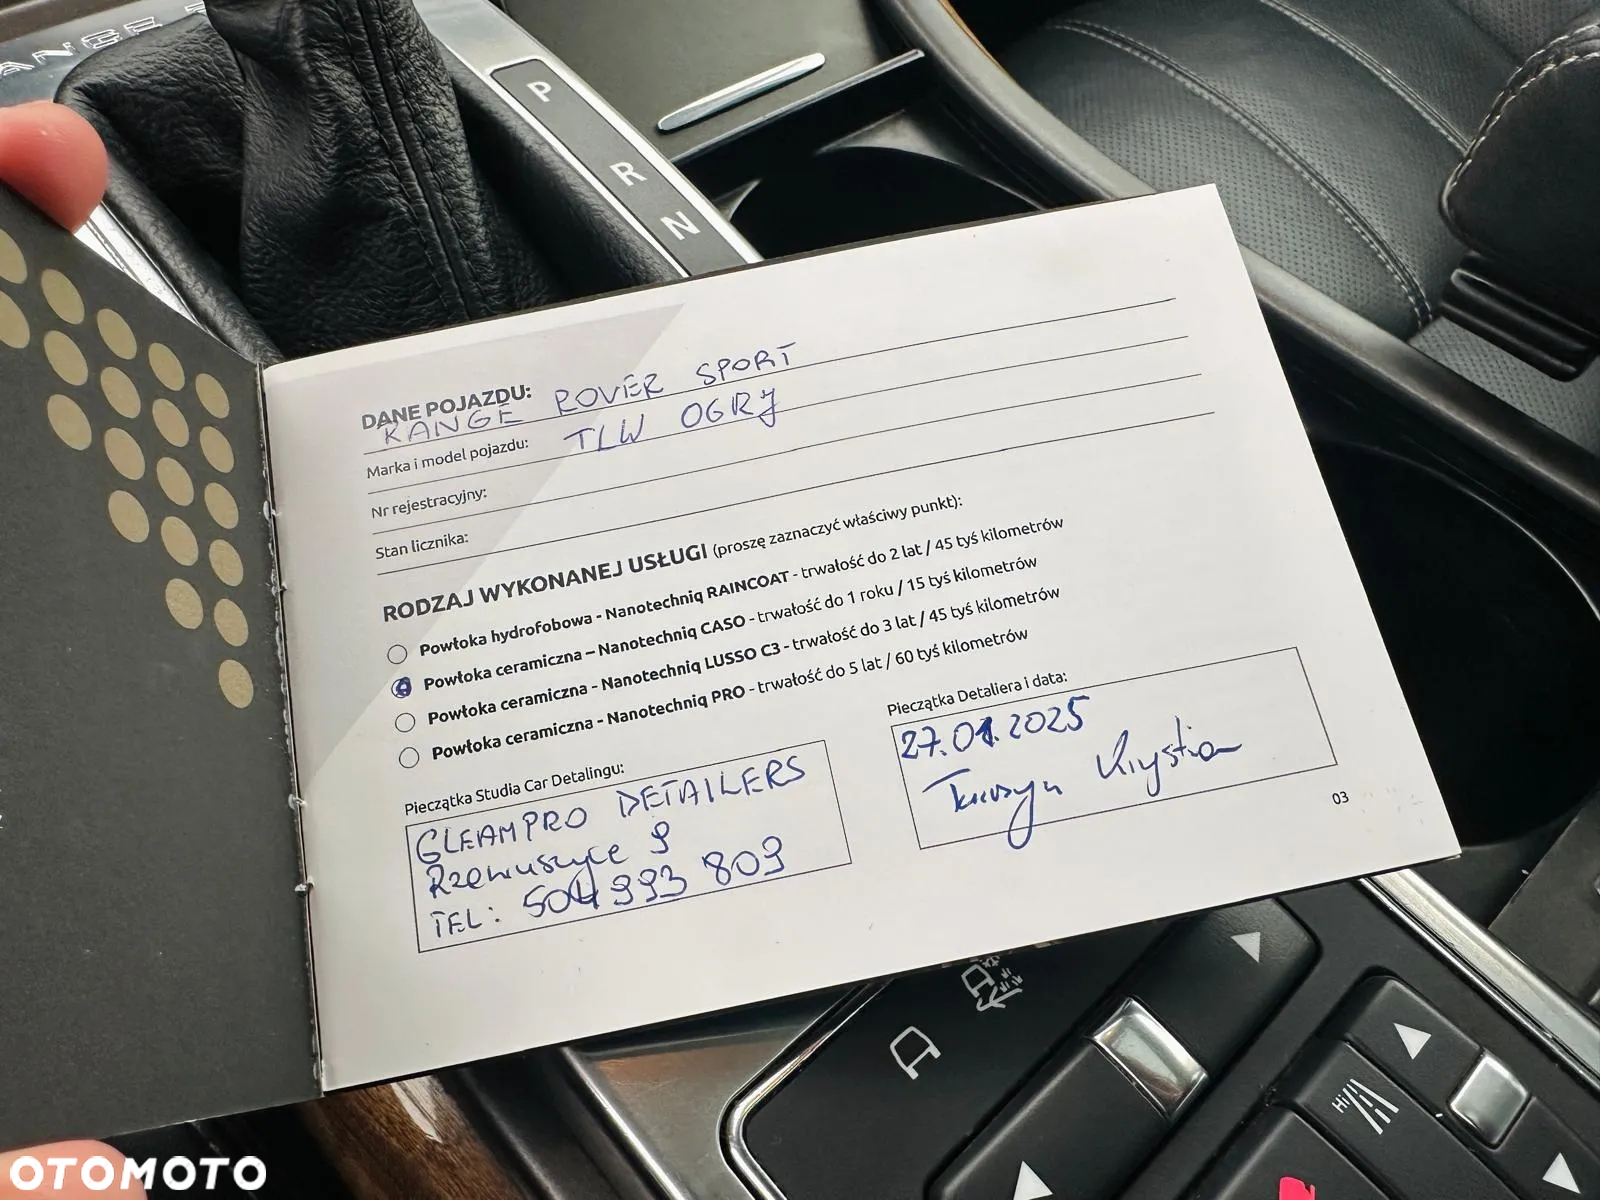 P
R
N
DANE POJAZDU:
RANGE ROVER SPORT
Marka i model pojazdu:
TLW OGRJ
Nr rejestracyjny:
Stan licznika:
RODZAJ WYKONANEJ USŁUGI (proszę zaznaczyć właściwy punkt):
Powłoka hydrofobowa - Nanotechniq RAINCOAT - trwałość do 2 lat / 45 tyś kilometrów
Powłoka ceramiczna – Nanotechniq CASO - trwałość do 1 roku / 15 tyś kilometrów
Powłoka ceramiczna - Nanotechniq LUSSO C3 - trwałość do 3 lat / 45 tyś kilometrów
Powłoka ceramiczna - Nanotechniq PRO - trwałość do 5 lat / 60 tyś kilometrów
Pieczątka Studia Car Detalingu:
GLEAMPRO DETAILERS
Rzewuszyce 9
TEL: 504 993 809
Pieczątka Detaliera i data:
27.01.2025
Krystian
03
Hi
OTOMOTO